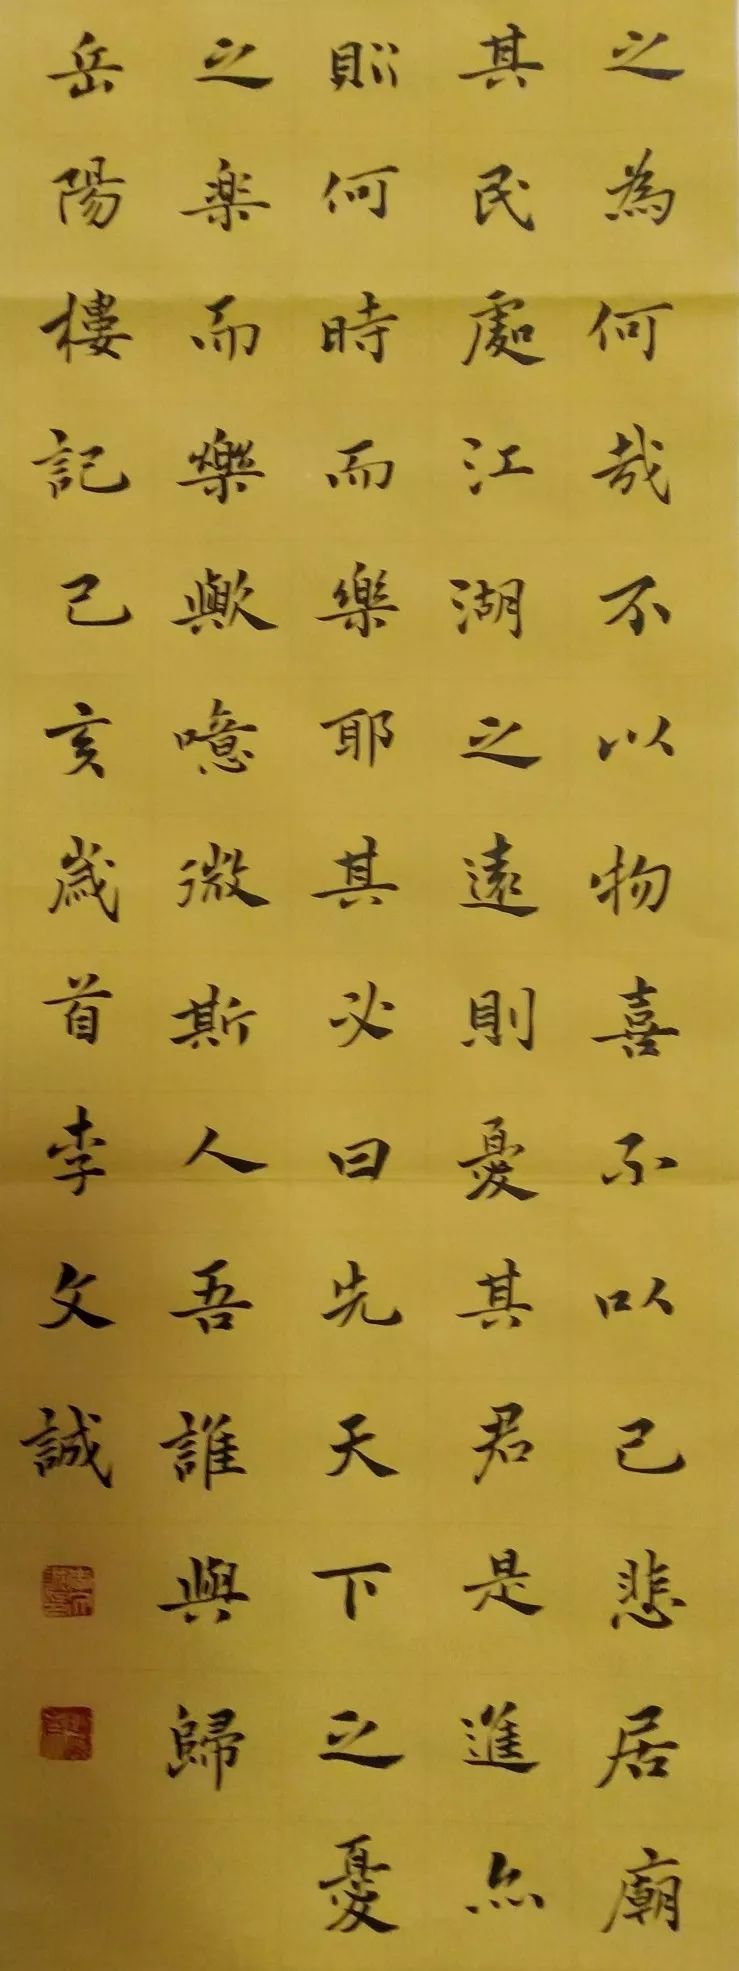 之為何哉不以物喜不以己悲居廟
其民處江湖之遠則憂其君是進亦
則何時而樂耶其必曰先天下之憂
之楽而樂歟噫微斯人吾誰與歸
岳陽樓記己亥歲首李文誠